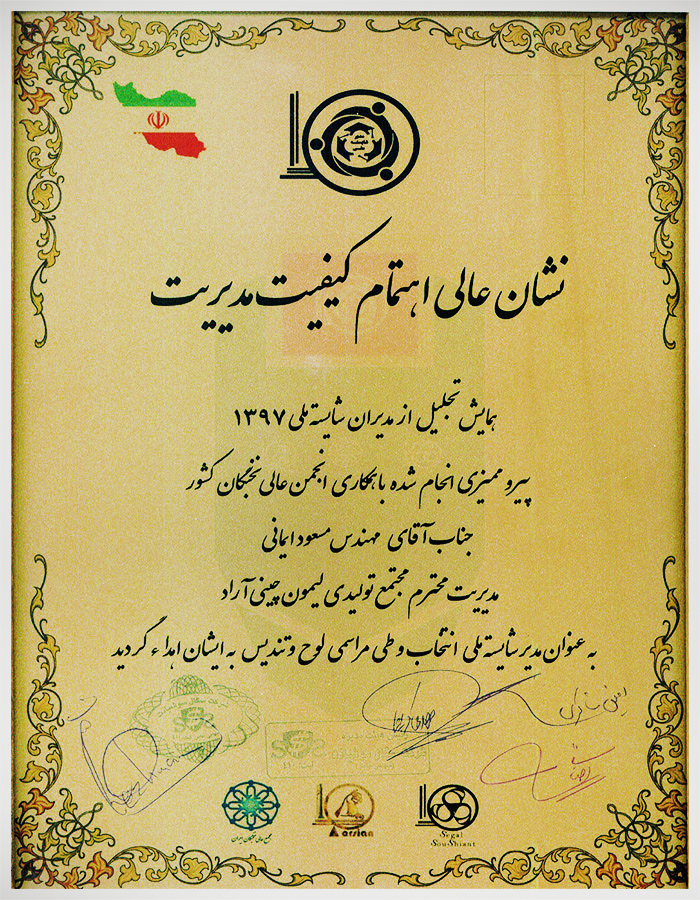 نشان عالی اهتمام کیفیت مدیریت
همایش تجلیل از مدیران شایسته ملی ۱۳۹۷
پیرو ممیزی انجام شده باهمکاری انجمن عالی نخبگان کشور
جناب آقای مهندس مسعود ایمانی
مدیریت محترم مجتمع تولیدی لیمون چینی آراد
به عنوان مدیر شایسته ملی انتخاب و طی مراسمی لوح و تندیس به ایشان اهداء گردید
مجمع عالی نخبگان ایران
Karsian
Segal
SouShiant